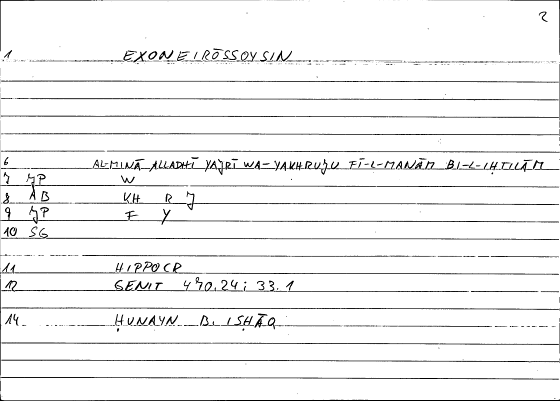 2
1 EXONEIRŌSSOYSIN
6 AL-MINĀ ALLADHĪ YAJRĪ WA-YAKHRUJU FĪ-L-MANĀM BI-L-IḤTILĀM
7 JP W
8 AB KH R J
9 JP F Y
10 SG
11 HIPPOCR
12 GENIT 470.24; 33.1
14 ḤUNAYN B. ISḤĀQ